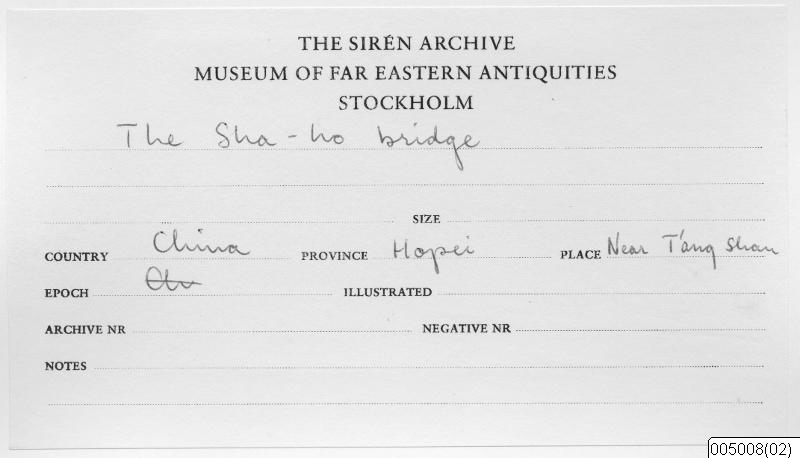 THE SIRÉN ARCHIVE
MUSEUM OF FAR EASTERN ANTIQUITIES
STOCKHOLM
The Sha-ho bridge
SIZE
COUNTRY China PROVINCE Hopei PLACE Near T'ang shan
EPOCH ILLUSTRATED
ARCHIVE NR NEGATIVE NR
NOTES
005008(02)